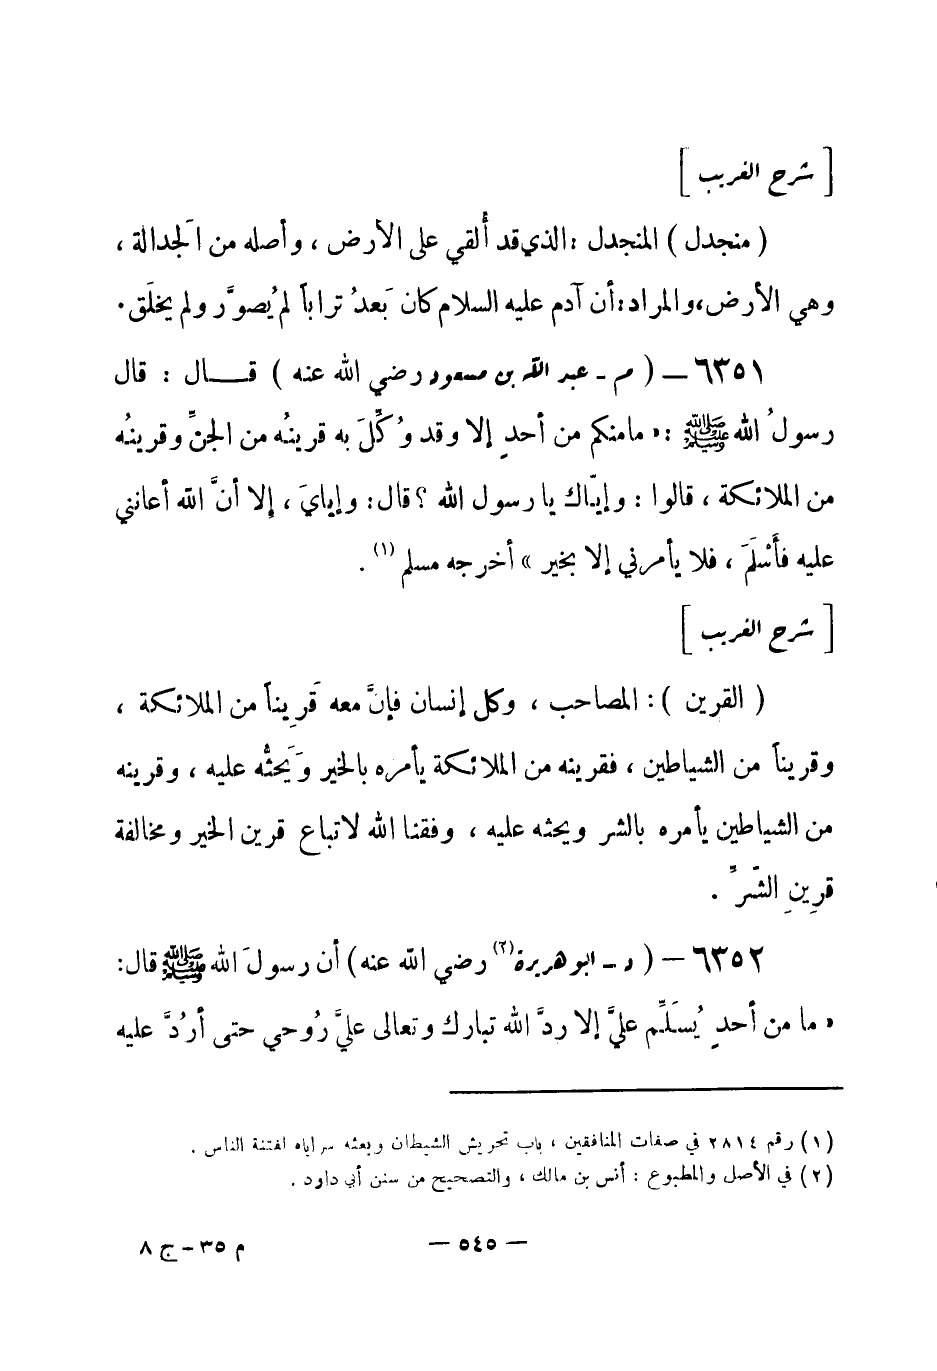 [ شرح الغريب ]
( منجدل ) المنجدل : الذي قد أُلقي على الأرض ، وأصله من الَجدالة ،
وهي الأرض ، والمراد : أن آدم عليه السلام كان بَعدُ تراباً لم يُصوَّر ولم يخلَق .
٦٣٥١ — ( م - عبد الله بن مسعود رضي الله عنه ) قـــال : قال
رسولُ الله ﷺ : « ما منكم من أحدٍ إلا وقد وُكِّلَ به قرينُه من الجنِّ وقرينُه
من الملائكة ، قالوا : وإيّاك يا رسول الله ؟ قال : وإيايَ ، إلا أنَّ الله أعانني
عليه فأَسْلَمَ ، فلا يأمرني إلا بخير » أخرجه مسلم (١) .
[ شرح الغريب ]
( القرين ) : المصاحب ، وكل إنسان فإنَّ معه قَرِيناً من الملائكة ،
وقريناً من الشياطين ، فقرينه من الملائكة يأمره بالخير وَيَحثُّه عليه ، وقرينه
من الشياطين يأمره بالشر ويحثه عليه ، وفقنا الله لاتباع قرين الخير ومخالفة
قرِينِ الشّرِّ .
٦٣٥٢ — ( د - ابو هريرة (٢) رضي الله عنه ) أن رسولَ الله ﷺ قال :
« ما من أحدٍ يُسَلِّم عليَّ إلا ردَّ الله تبارك وتعالى عليَّ رُوحي حتى أرُدَّ عليه
(١) رقم ٢٨١٤ في صفات المنافقين ، باب تحريش الشيطان وبعثه سراياه لفتنة الناس .
(٢) في الأصل والمطبوع : أنس بن مالك ، والتصحيح من سنن أبي داود .
— ٥٤٥ —
م ٣٥ - ج ٨